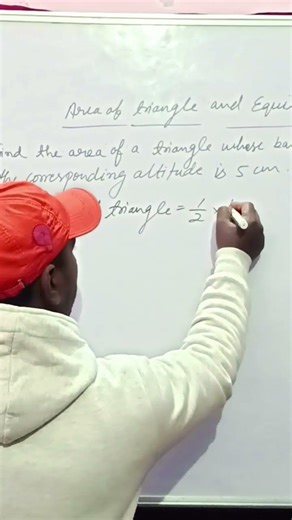 Area of triangle and Equi
ind the area of a triangle whose ba
the corresponding altitude is 5 cm.
triangle = 1/2 ×